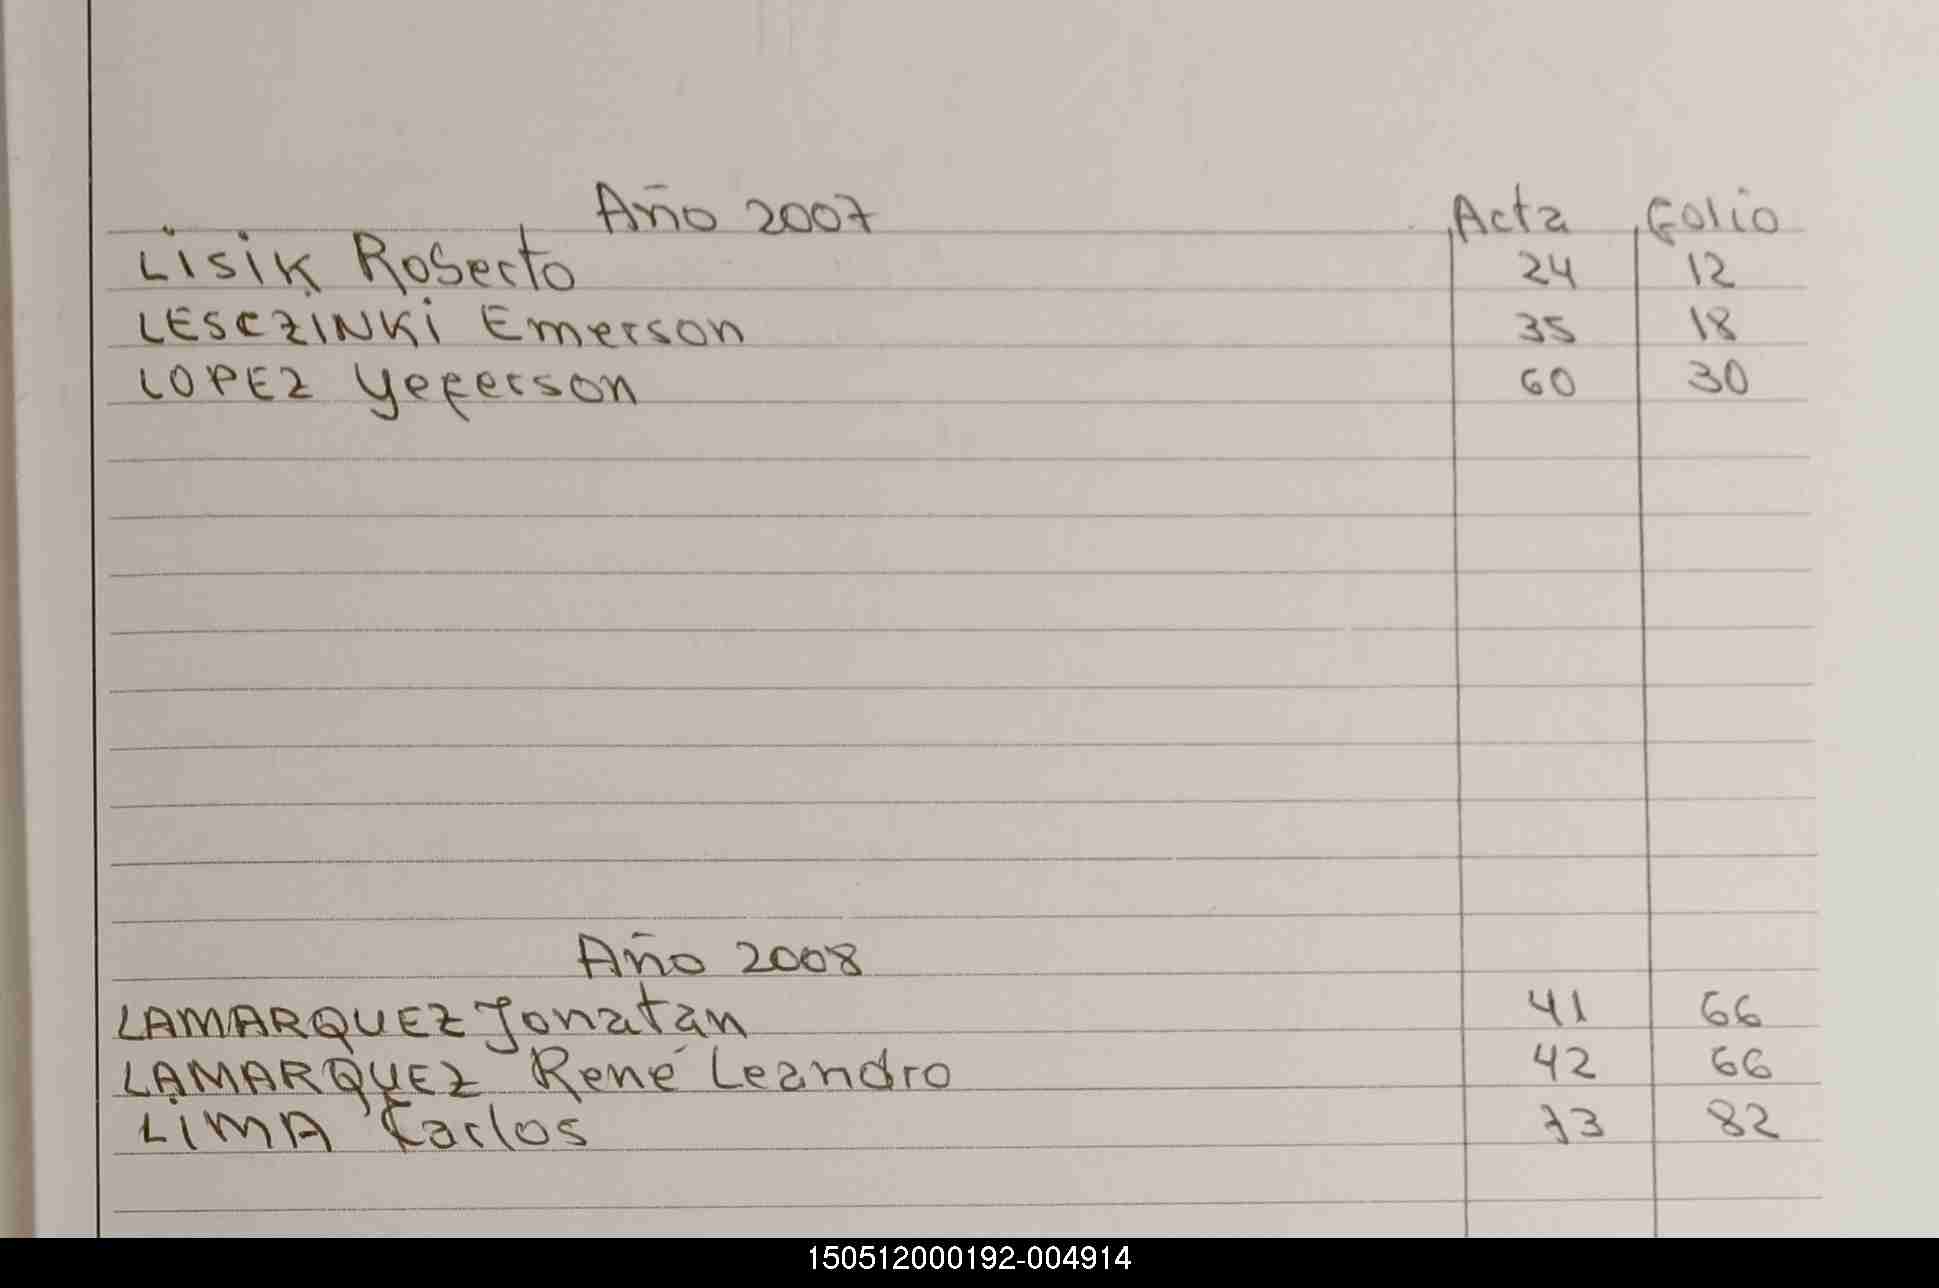 Año 2007 Acta Folio
LISIK Roberto 24 12
LESCZINKI Emerson 35 18
LOPEZ Yeferson 60 30
Año 2008
LAMARQUEZ Jonatan 41 66
LAMARQUEZ René Leandro 42 66
LIMA Carlos 73 82
150512000192-004914